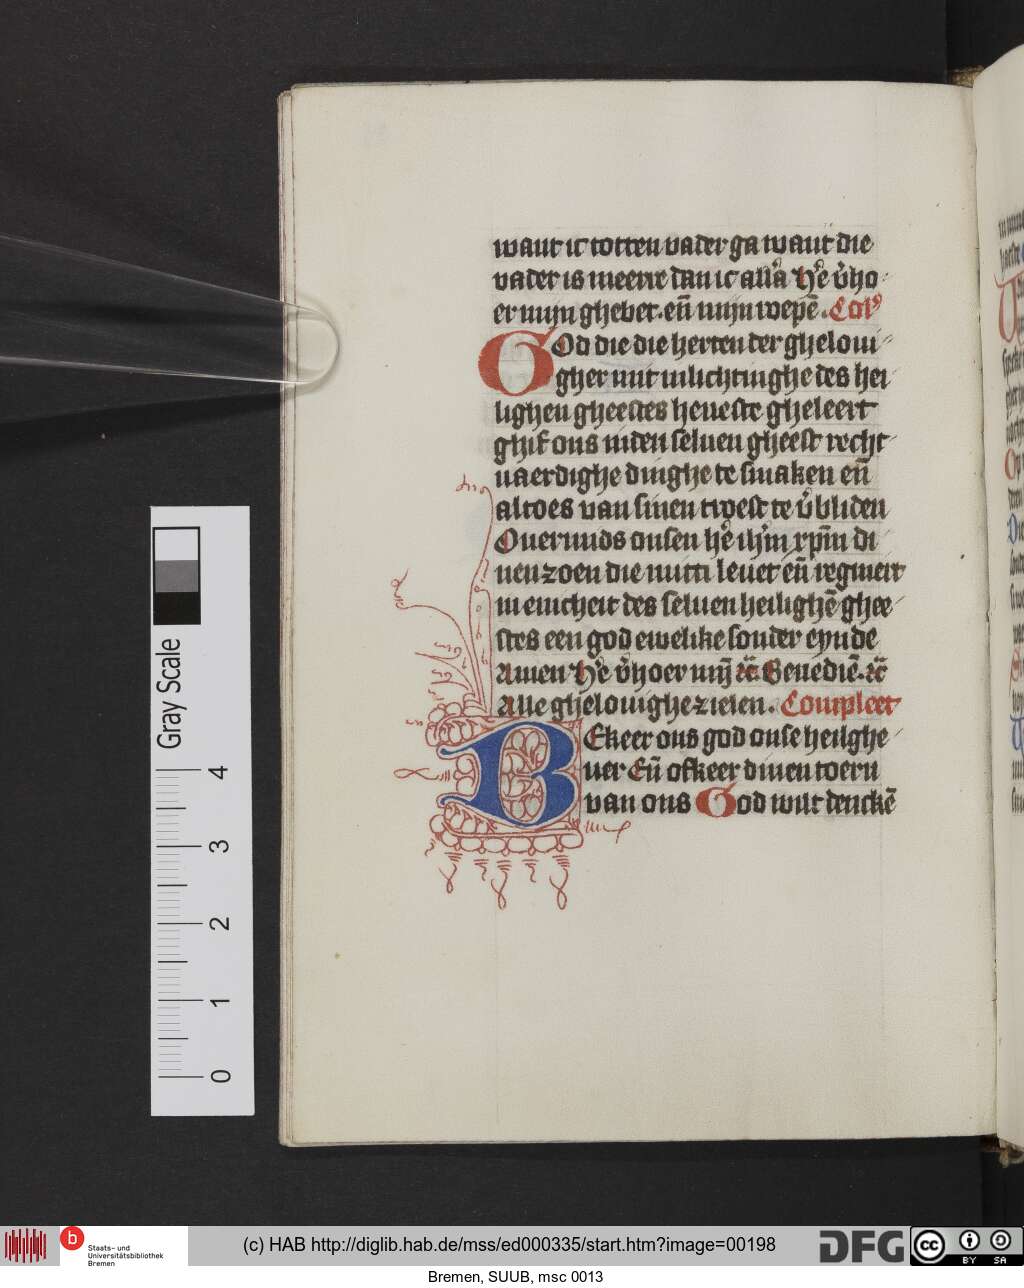 want ic totten vader ga want die
vader is meerre dan ic all'a He v'ho
er mijn ghebet. eñ mijn roepē. Col'
God die die herten der ghelovi
gher mit inlichtinghe des hei
lighen gheestes heveste gheleert
ghif ons inden seluen gheest recht
uaerdighe dinghe te smaken eñ
altoes van sinen troest te v'bliden
Ouermids onsen he ihm xpm di
nen zoen die mitti leuet eñ regneirt
in enicheit des seluen heilighē ghee
stes een god ewelike sonder eynde
Amen He v'hoer mij zc̄ Benedic̄. zc̄
Alle ghelouighe zielen. Compleet
BEkeer ons god onse heilghe
uer Eñ ofkeer dinen toern
van ons God wilt denckē
Gray Scale
4
3
2
1
0
b
Staats- und
Universitätsbibliothek
Bremen
(c) HAB http://diglib.hab.de/mss/ed000335/start.htm?image=00198
DFG
cc BY SA
Bremen, SUUB, msc 0013